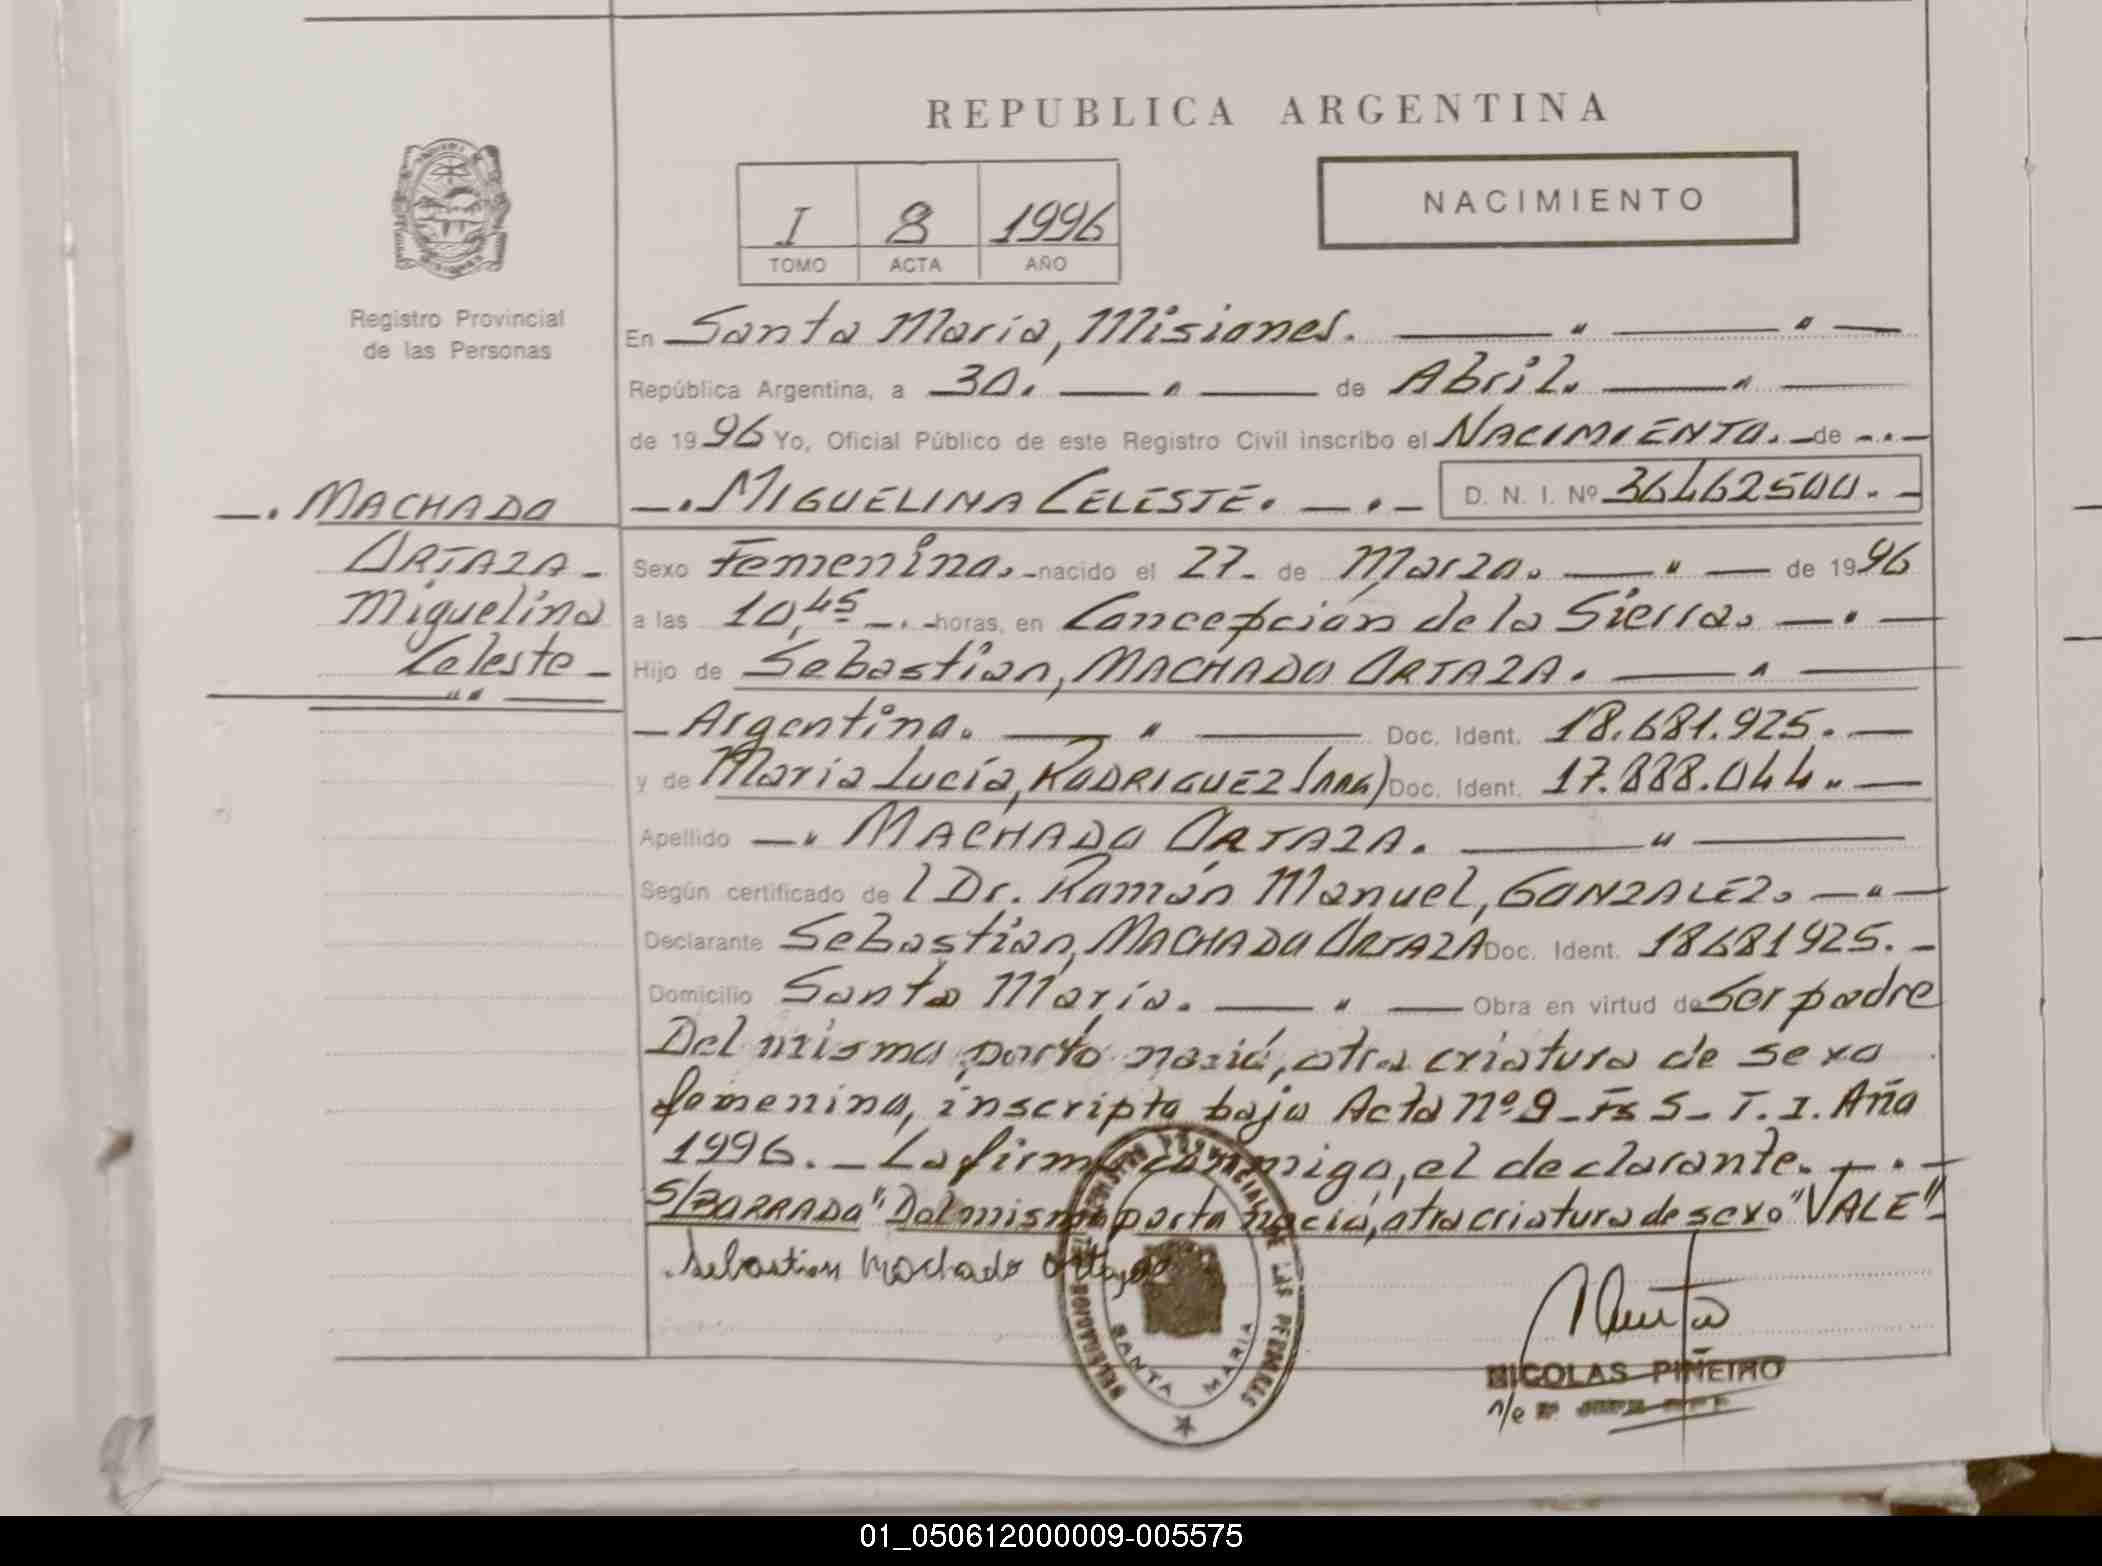 REPUBLICA ARGENTINA
NACIMIENTO
I 8 1996
TOMO ACTA AÑO
Registro Provincial
de las Personas
En Santa María, Misiones.
República Argentina, a 30. de Abril.
de 1996 Yo, Oficial Público de este Registro Civil inscribo el NACIMIENTO. de
MIGUELINA CELESTE. D. N. I. Nº 36462500.
MACHADO
ORTAZA
Miguelina
Celeste
Sexo Femenino. nacido el 27 de Marzo. de 1996
a las 10,45 horas, en Concepción de la Sierra.
Hijo de Sebastian, MACHADO ORTAZA.
Argentino. Doc. Ident. 18.681.925.
y de María Lucía, RODRIGUEZ (ARG) Doc. Ident. 17.888.044.
Apellido MACHADO ORTAZA.
Según certificado de l Dr. Ramón Manuel, GONZALEZ.
Declarante Sebastian, MACHADO ORTAZA Doc. Ident. 18681925.
Domicilio Santa María. Obra en virtud de Ser padre
Del mismo parto nació, otra criatura de sexo
femenino, inscripta bajo Acta nº 9 - Fs 5 - T. I. Año
1996. La firma conmigo, el declarante.
S/BORRADO "Del mismo parto nació, otra criatura de sexo" VALE"
Sebastian Machado Ortaza
DELEGACION REGISTRO PROVINCIAL DE LAS PERSONAS
SANTA MARIA
NICOLAS PIÑEIRO
01_050612000009-005575